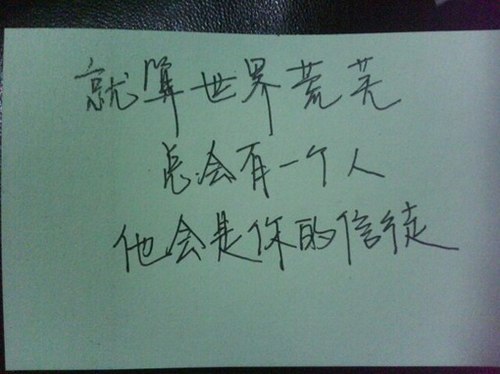 就算世界荒芜
总会有一个人
他会是你的信徒